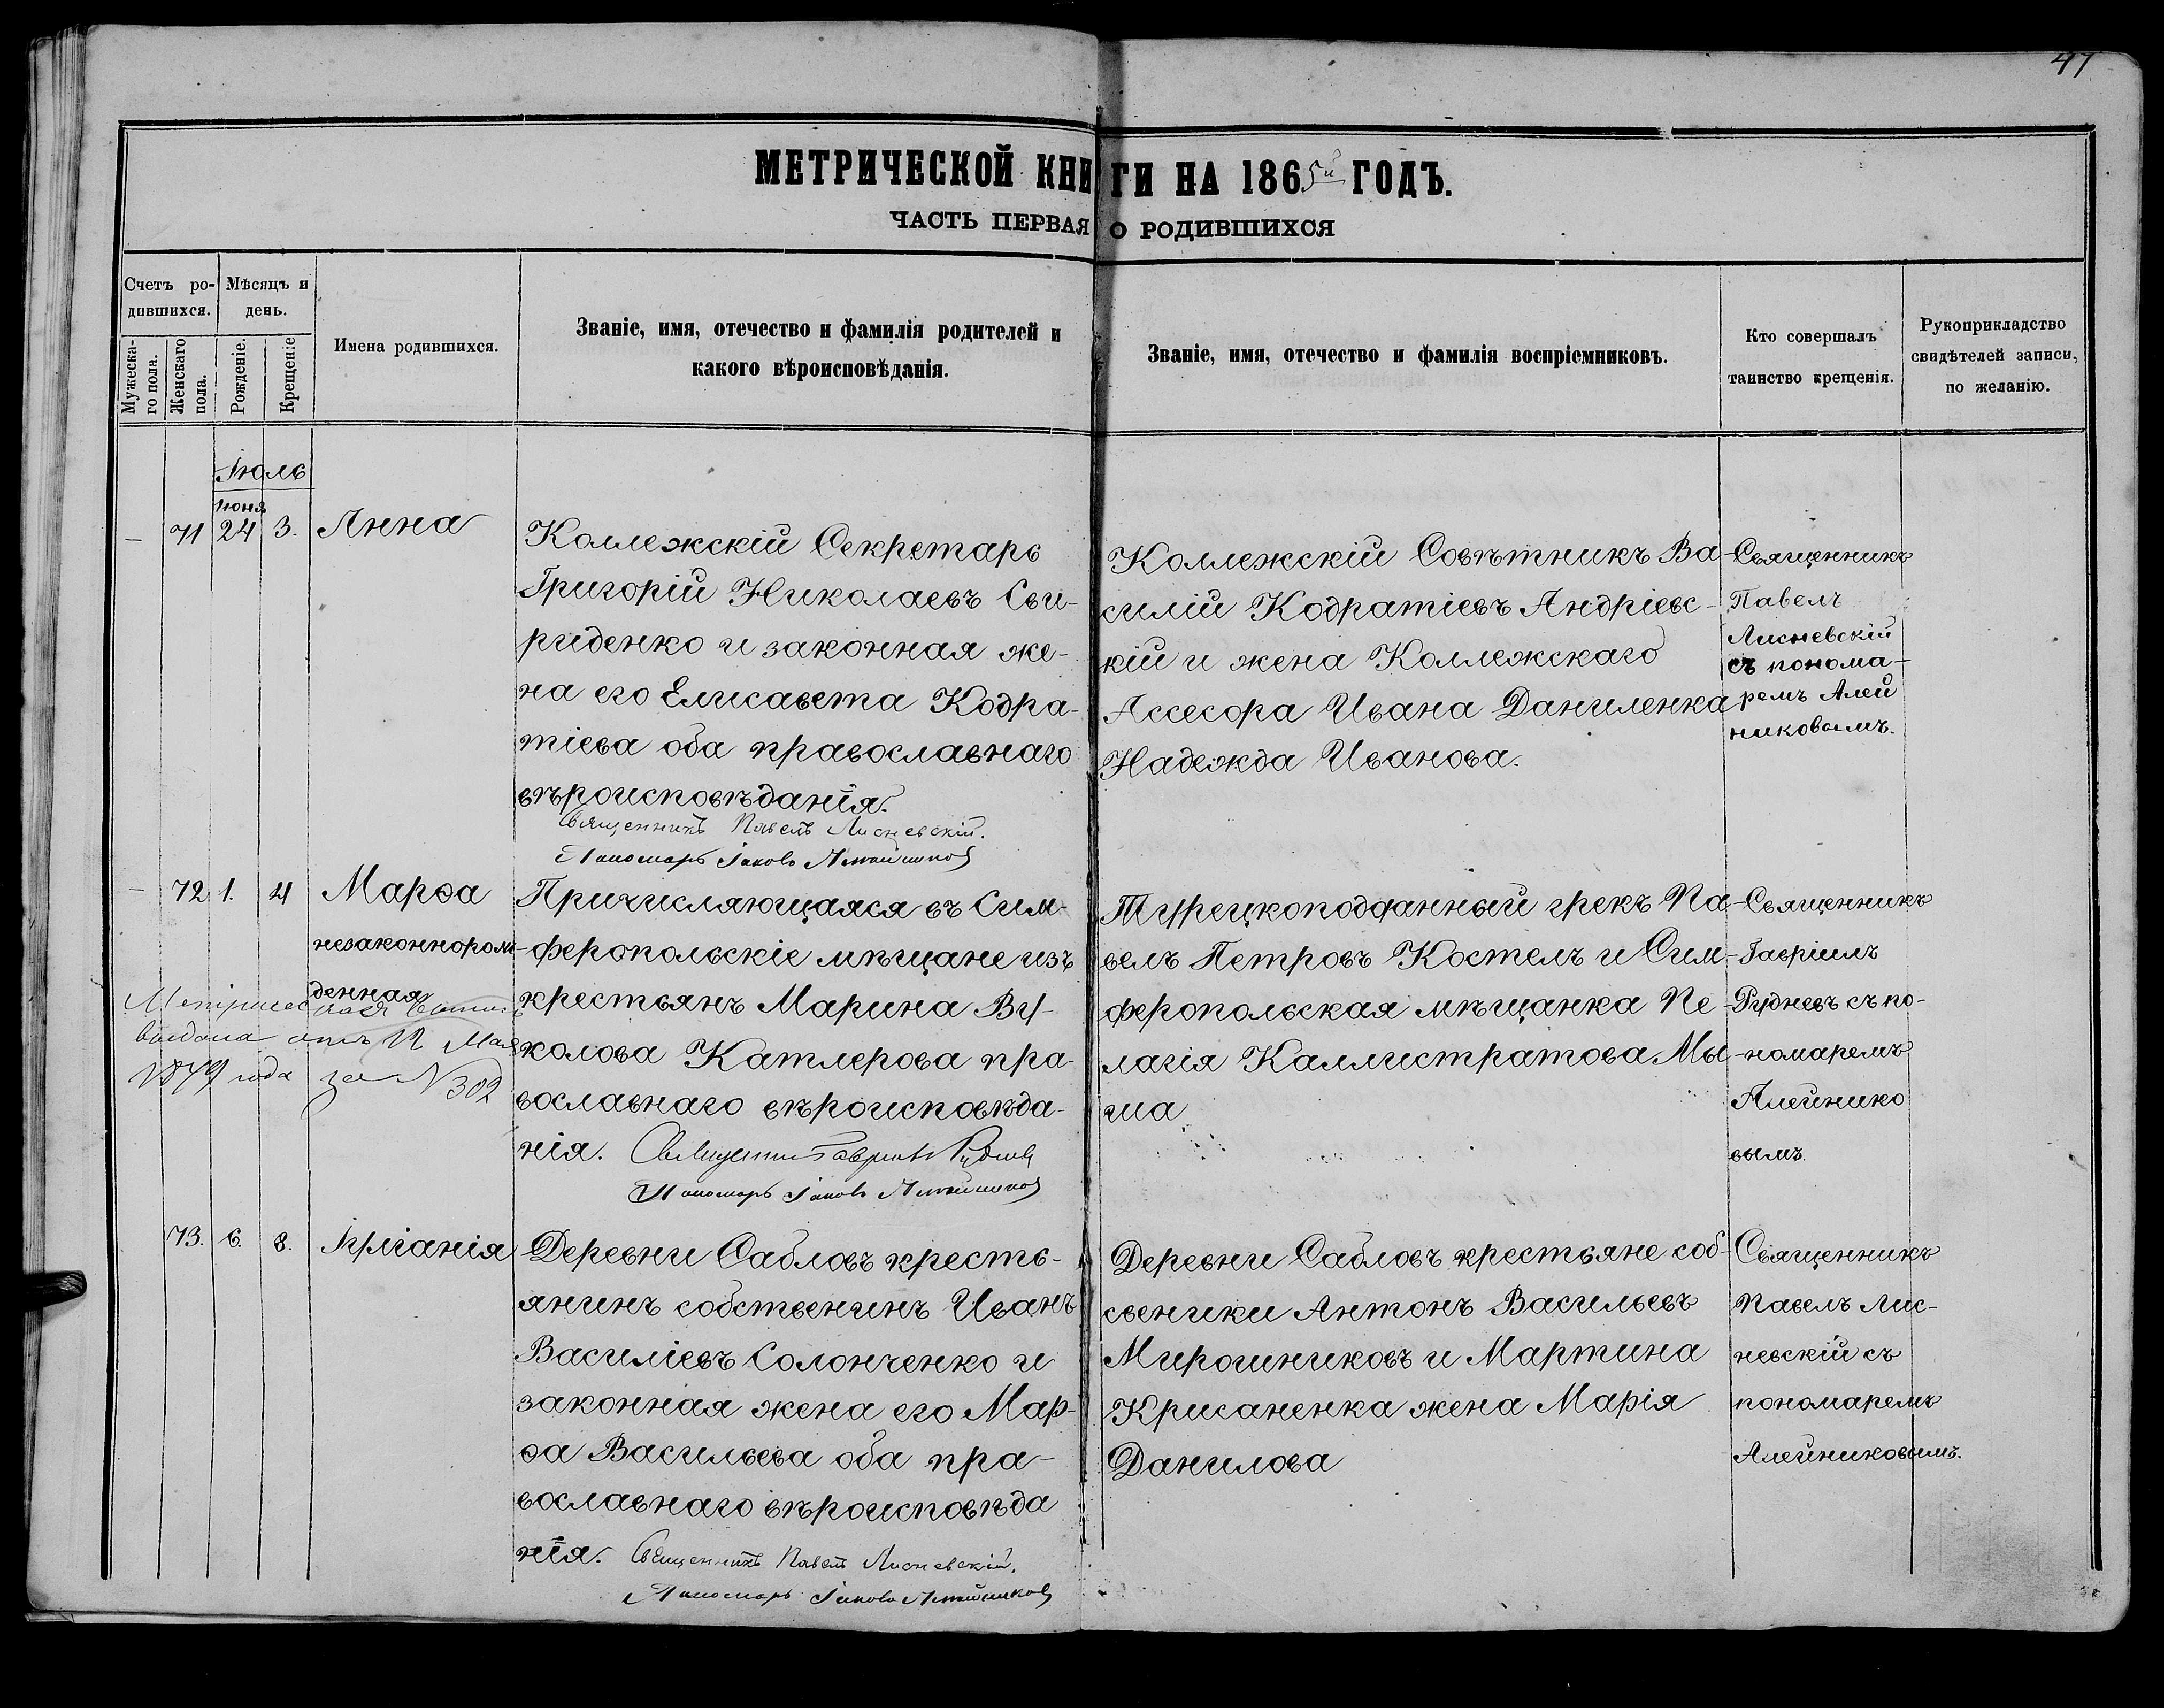 47
МЕТРИЧЕСКОЙ КНИГИ НА 1865й ГОДЪ.
ЧАСТЬ ПЕРВАЯ О РОДИВШИХСЯ
Счетъ ро-
дившихся.
Мѣсяцъ и
день.
Мужеска-
го пола.
Женскаго
пола.
Рожденіе.
Крещеніе
Имена родившихся.
Званіе, имя, отечество и фамилія родителей и
какого вѣроисповѣданія.
Званіе, имя, отечество и фамилія воспріемниковъ.
Кто совершалъ
таинство крещенія.
Рукоприкладство
свидѣтелей записи,
по желанію.
Іюль
Іюня
— 71 24 3. Анна
Коллежскій Секретарь
Григорій Николаевъ Сви-
риденко и законная же-
на его Елисавета Кодра-
тіева оба православнаго
вѣроисповѣданія.
Священникъ Павелъ Лисневскій.
Пономарь Іаковъ Алейников
Коллежскій Совѣтникъ Ва-
силій Кодратіевъ Андріевс-
кій и жена Коллежскаго
Ассесора Ивана Даниленка
Надежда Иванова.
Священникъ
Павелъ
Лисневскій
съ понома-
ремъ Алей
никовымъ.
— 72 1. 4 Марѳа
незаконнорож-
денная
выдана отъ 12 Мая
года за N 302
Причисляющаяся въ Сим-
феропольскіе мѣщане изъ
крестьянъ Марина Ву-
колова Катлерова пра-
вославнаго вѣроисповѣда-
нія. Священникъ Гавріилъ Рудневъ
Пономарь Іаковъ Алейников
Турецкоподданный грекъ Па-
велъ Петровъ Костелъ и Сим-
феропольская мѣщанка Пе-
лагія Каллистратова Мы-
гиа
Священникъ
Гавріилъ
Рудневъ съ по-
номаремъ
Алейнико
вымъ.
73. 6. 8. Іуліанія
Деревни Сабловъ кресть-
янинъ собственинъ Иванъ
Василіевъ Солонченко и
законная жена его Мар-
ѳа Васильева оба пра-
вославнаго вѣроисповѣда
нія. Священникъ Павелъ Лисневскій.
Пономарь Іаковъ Алейников
Деревни Сабловъ крестьяне соб-
свеники Антонъ Васильевъ
Мирошниковъ и Мартина
Крисаненка жена Марія
Данилова
Священникъ
Павелъ Лис-
невскій съ
пономаремъ
Алейниковымъ.